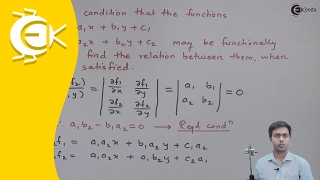 Ekeeda
condition that the functions
a₁x + b₁y + c₁
a₂x + b₂y + c₂ may be functionally
find the relation between them, when
satisfied.
f₂) = | ∂f₁/∂x ∂f₁/∂y | = | a₁ b₁ | = 0
y) | ∂f₂/∂x ∂f₂/∂y | | a₂ b₂ |
∴ a₁b₂ - b₁a₂ = 0 → Reqd condⁿ
₂f₁ = a₁a₂x + b₁a₂y + c₁a₂
f₂ = a₁a₂x + a₁b₂y + c₂a₁